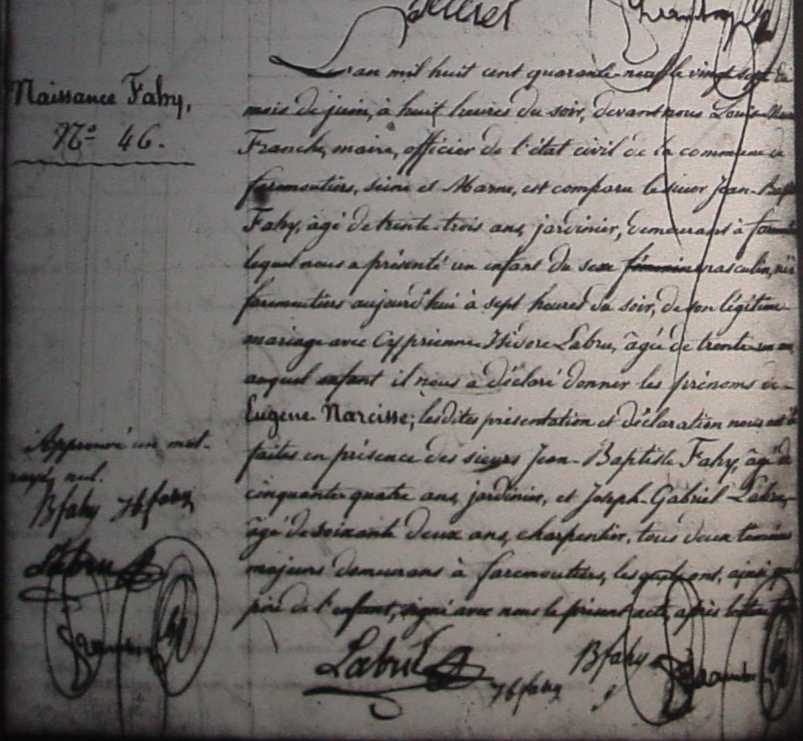 Naissance Fahy,
N.º 46.
L'an mil huit cent quarante-neuf le vingt sept du
mois de juin, à huit heures du soir, devant nous Louis
Franche, maire, officier de l'état civil de la commune de
faremoutiers, Seine et Marne, est comparu le sieur Jean-Bap
Fahy, âgé de trente-trois ans, jardinier, demeurant à
lequel nous a présenté un enfant du sexe féminin masculin, né à
faremoutiers aujourd'hui à sept heures du soir, de son légitime
mariage avec Cyprienne Isidore Labru, âgée de trente-un ans,
auquel enfant il nous a déclaré donner les prénoms de
Eugène Narcisse; les dites présentation et déclaration nous ont été
faites en présence des sieurs Jean-Baptiste Fahy, âgé de
cinquante-quatre ans, jardinier, et Joseph-Gabriel Labru,
âgé de soixante deux ans, charpentier, tous deux témoins
majeurs demeurans à faremoutiers, lesquels ont, ainsi que
père de l'enfant, signé avec nous le présent acte, après lecture
Approuvé un mot
rayé, nul.
Bfahy Jbfahy
Labru
Franche
Labru
Jbfahy
Bfahy
Franche